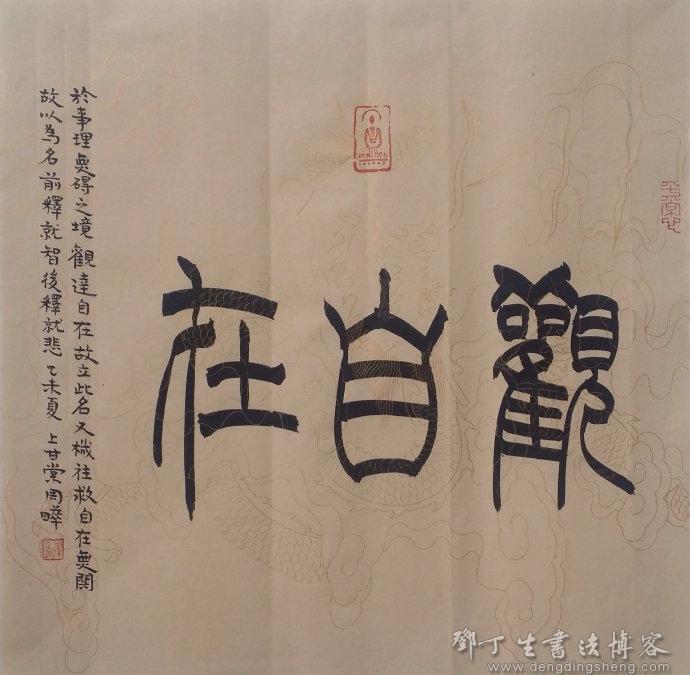 觀自在
於事理無碍之境觀達自在故立此名又機往救自在無闋
故以為名前釋就智後釋就悲乙未夏上甘棠周
平常心
鄧丁生書法博客
www.dengdingsheng.com